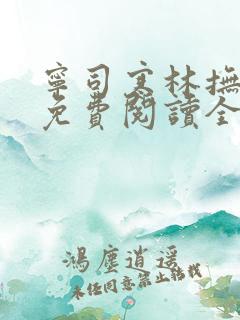 寧司寒林撫
免費閱讀全
鴻塵逍遥
未经同意禁止转载